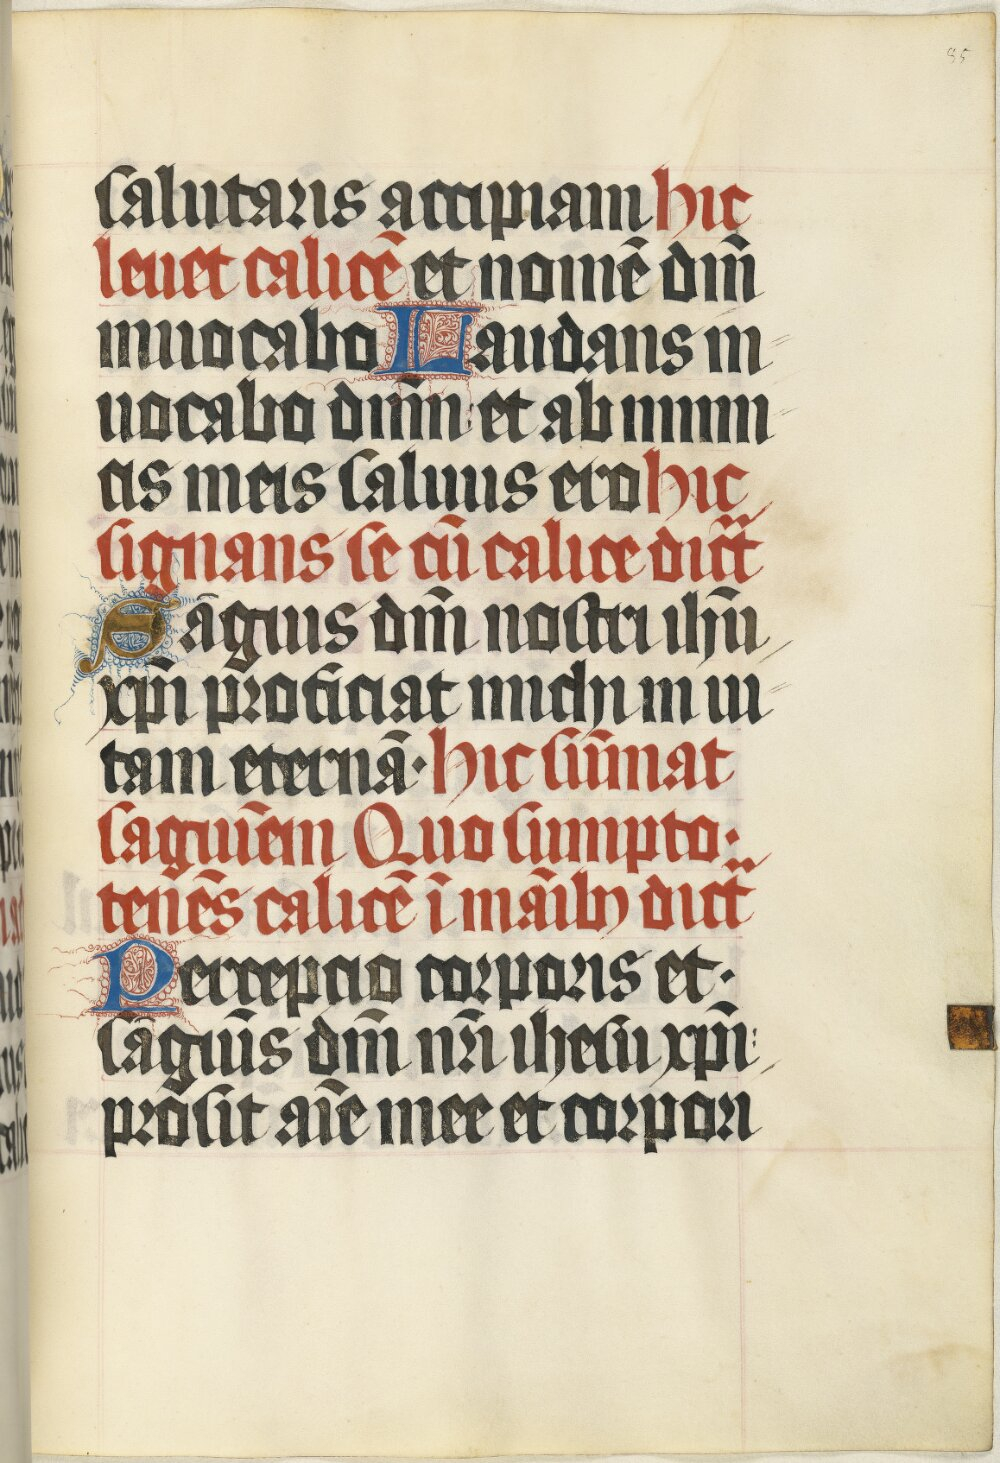 85
salutaris accipiam hic
leuet calicē et nomē dm̄
inuocabo Laudans in
uocabo dn̄m et ab inimi
cis meis saluus ero hic
signans se cū calice dict̄
Sāgius dm̄ nostri ihū
xp̄i proficiat michi in ui
tam eternā· hic sūmat
saguiēm Quo sumpto·
tenēs calicē ī māib; dict̄
Percepcio corporis et·
sāgiūs dm̄ nr̄i ihesu xp̄i
prosit aīe mee et corpori